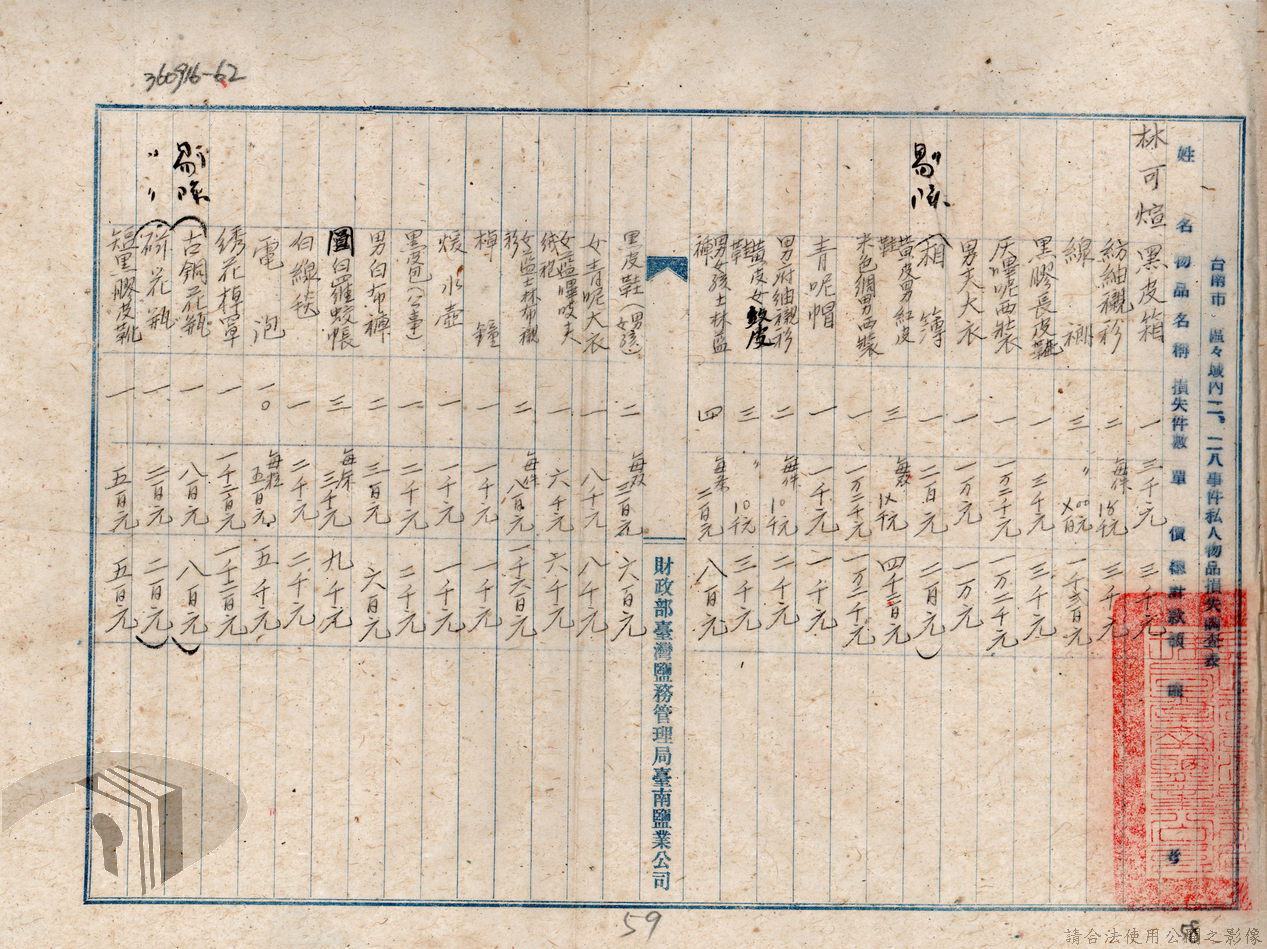 360916-62
台南市 區々域內二、二八事件私人物品損失調查表
姓 名 物品名稱 損失件數 單 價 總計款項 備 考
林可煊 黑皮箱 一 三千元 三千元
紡紬襯衫 二 每件15千元 三千元
線 襯 三 〃 元 一千二百元
黑膠長皮靴 一 三千元 三千元
灰嗶呢西裝 一 一万二千元 一万二千元
男夫大衣 一 一万元 一万元
剔除 相 簿 一 二百元 二百元
黃皮男紅皮鞋 三 每双 千元 四千二百元
米色綢男西裝 一 一万二千元 一万二千元
青呢帽 一 一千元 一千元
男府紬襯衫 二 每件10千元 二千元
黃皮女紋皮鞋 三 〃 10千元 三千元
男女孩士林藍褲 四 每条二百元 八百元
財政部臺灣鹽務管理局臺南鹽業公司
黑皮鞋（男女孩） 二 每双三百元 六百元
女士青呢大衣 一 八千元 八千元
女藍嗶吱夾絨袍 一 六千元 六千元
女藍士林布襯衫 二 每件八百元 一千六百元
棹 鐘 一 一千元 一千元
煖水壺 一 一千元 一千元
黑皮包（公事） 一 二千元 二千元
男白布褲 二 三百元 六百元
圓白羅蚊帳 三 每床三千元 九千元
白線毯 一 二千元 二千元
電 泡 一〇 每粒五百元 五千元
綉花棹單 一 一千二百元 一千二百元
剔除 古銅花瓶 一 八百元 八百元
〃 〃 磁花瓶 一 二百元 二百元
短黑膠皮靴 一 五百元 五百元
59
58
請合法使用公開之影像